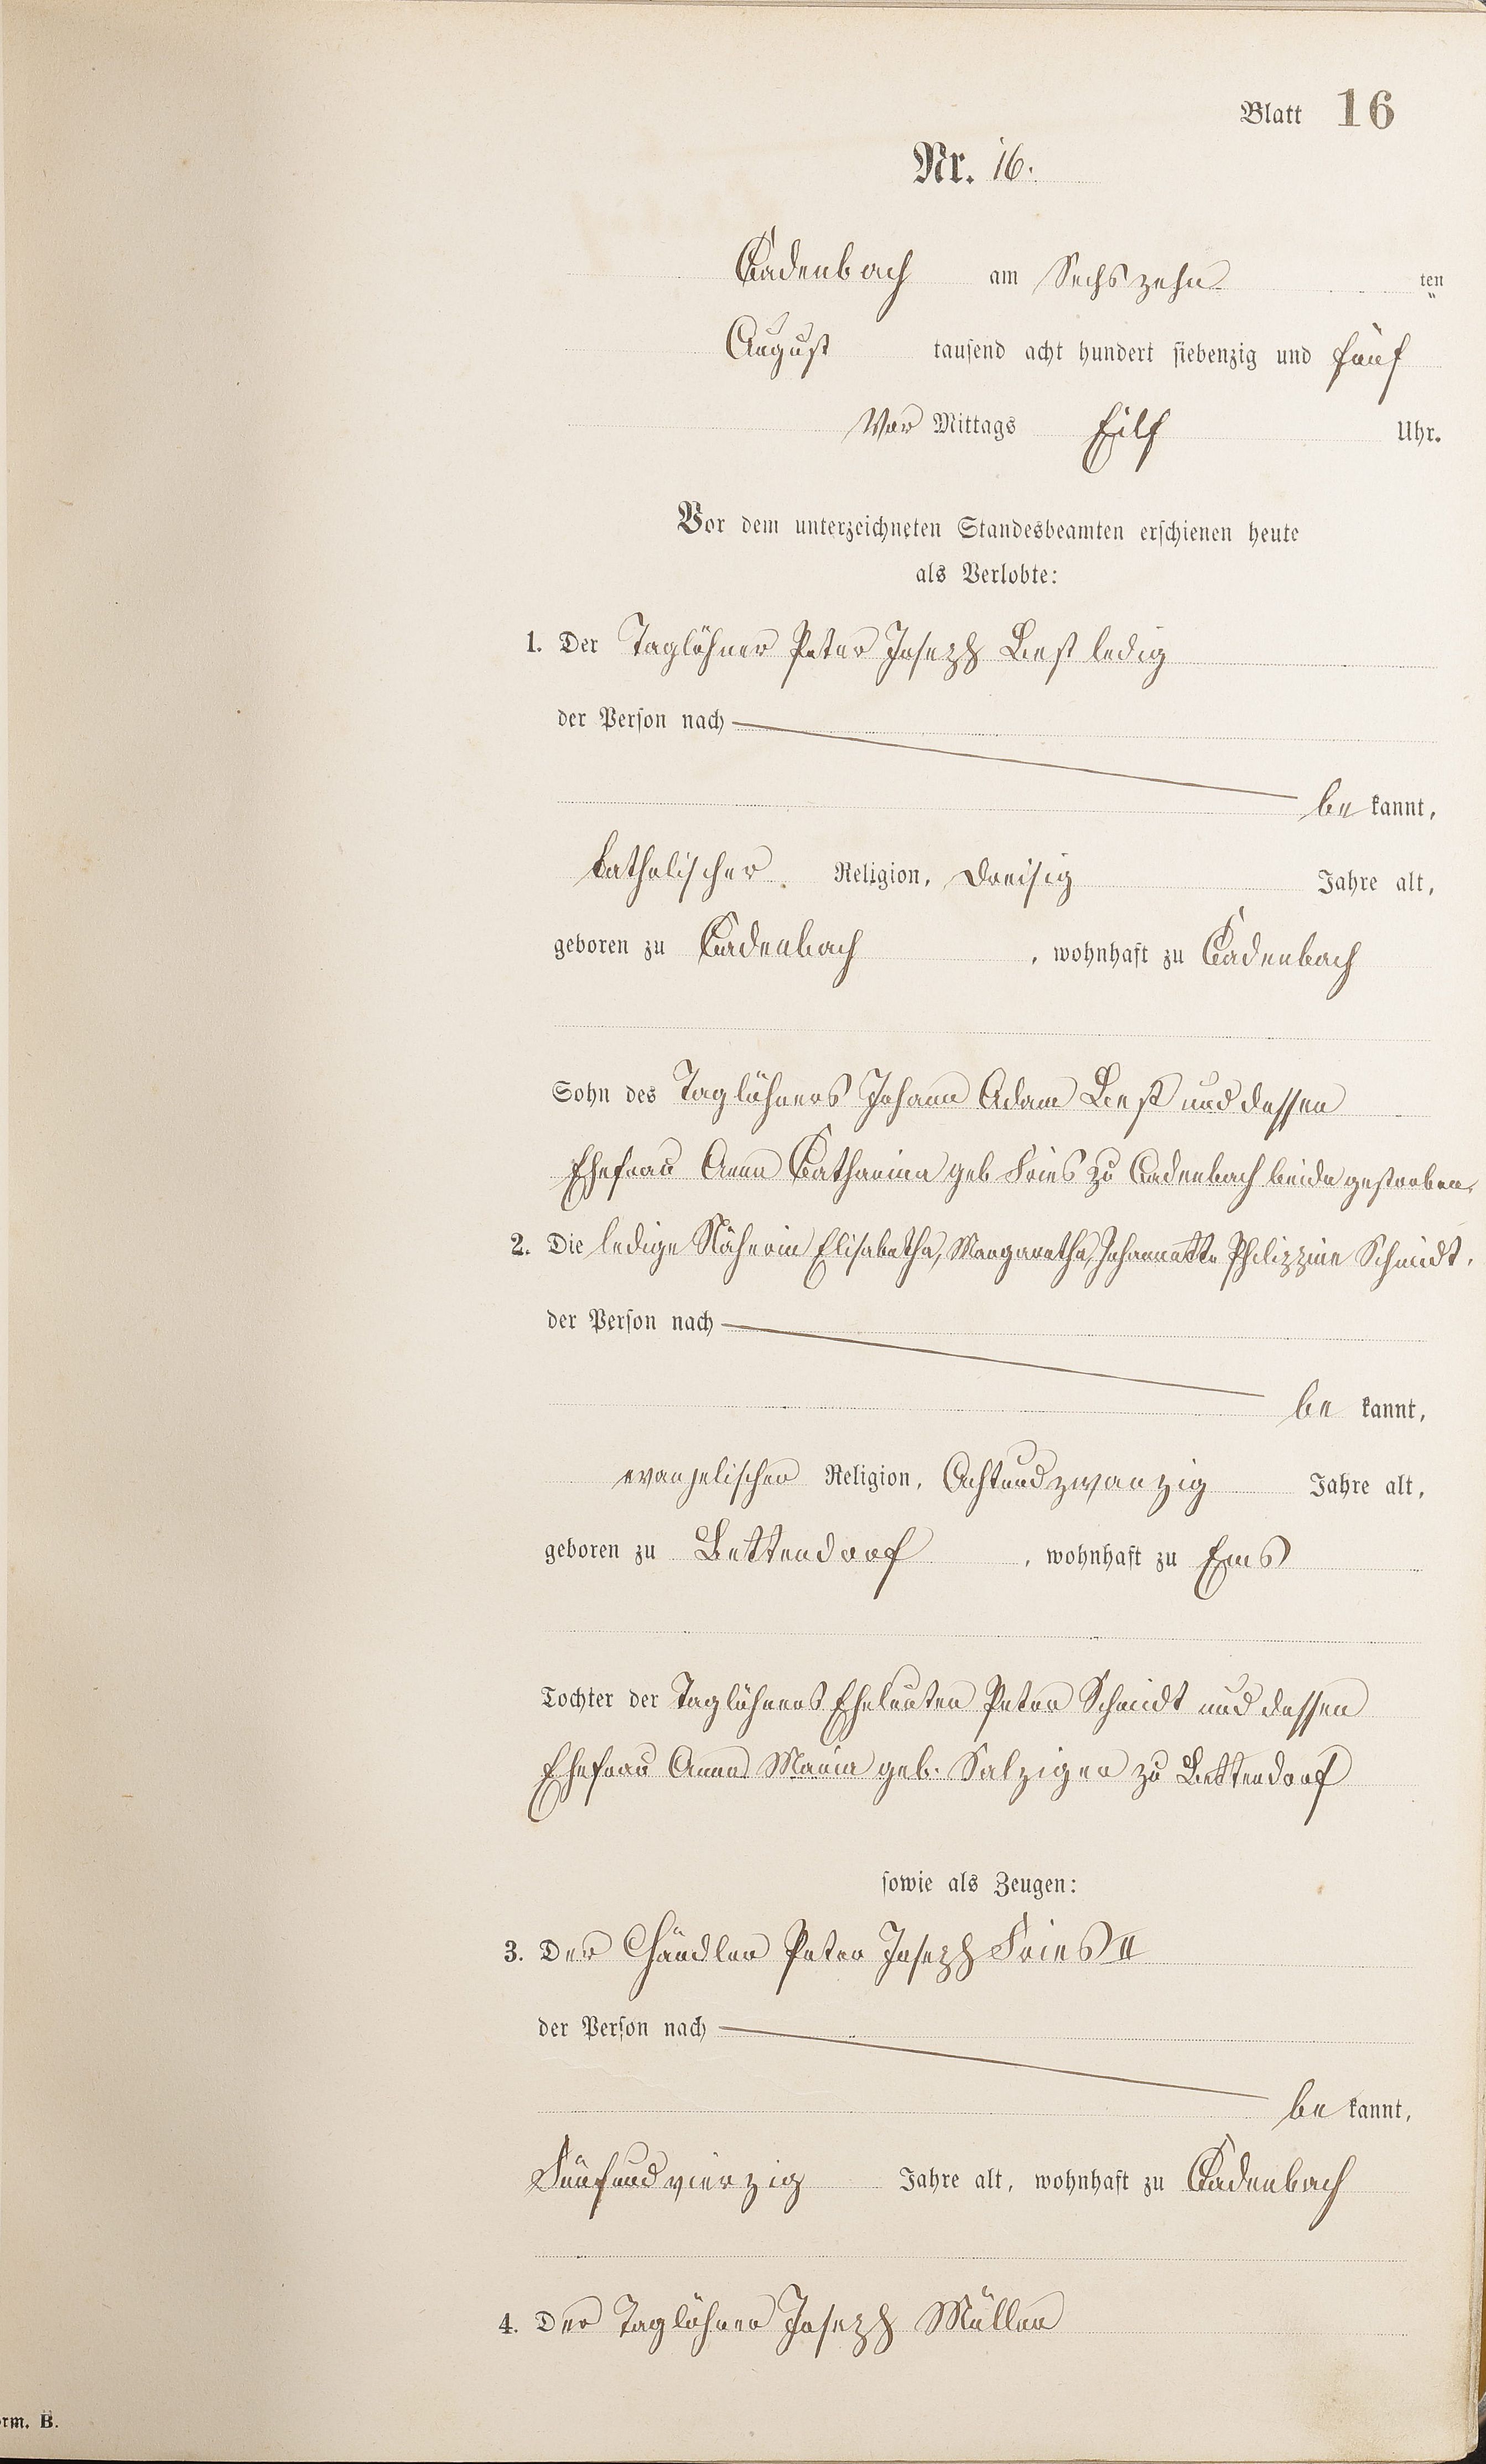 Blatt 16
Nr. 16.
Cadenbach am Sechszehn ten
August tausend acht hundert siebenzig und fünf
Vor Mittags Eilf Uhr.
Vor dem unterzeichneten Standesbeamten erschienen heute
als Verlobte:
1. Der Taglöhner Peter Joseph Best ledig
der Person nach
be kannt,
katholischer Religion, Dreisig Jahre alt,
geboren zu Cadenbach, wohnhaft zu Cadenbach
Sohn des Taglöhners Johann Adam Best und dessen
Ehefrau Anna Catharina geb Fries zu Cadenbach beide gestorben.
2. Die ledige Näherin Elisabetha, Margaretha, Johannette Philippine Schmidt.
der Person nach
be kannt,
evangelischer Religion, Achtundzwanzig Jahre alt,
geboren zu Bettendorf, wohnhaft zu Ems
Tochter der Taglöhners Eheleuten Peter Schmidt und dessen
Ehefrau Anna Maria geb. Salziger zu Bettendorf
sowie als Zeugen:
3. Der Händler Peter Joseph Fries II
der Person nach
be kannt,
Fünfundvierzig Jahre alt, wohnhaft zu Cadenbach
4. Der Taglöhner Joseph Müller
orm. B.